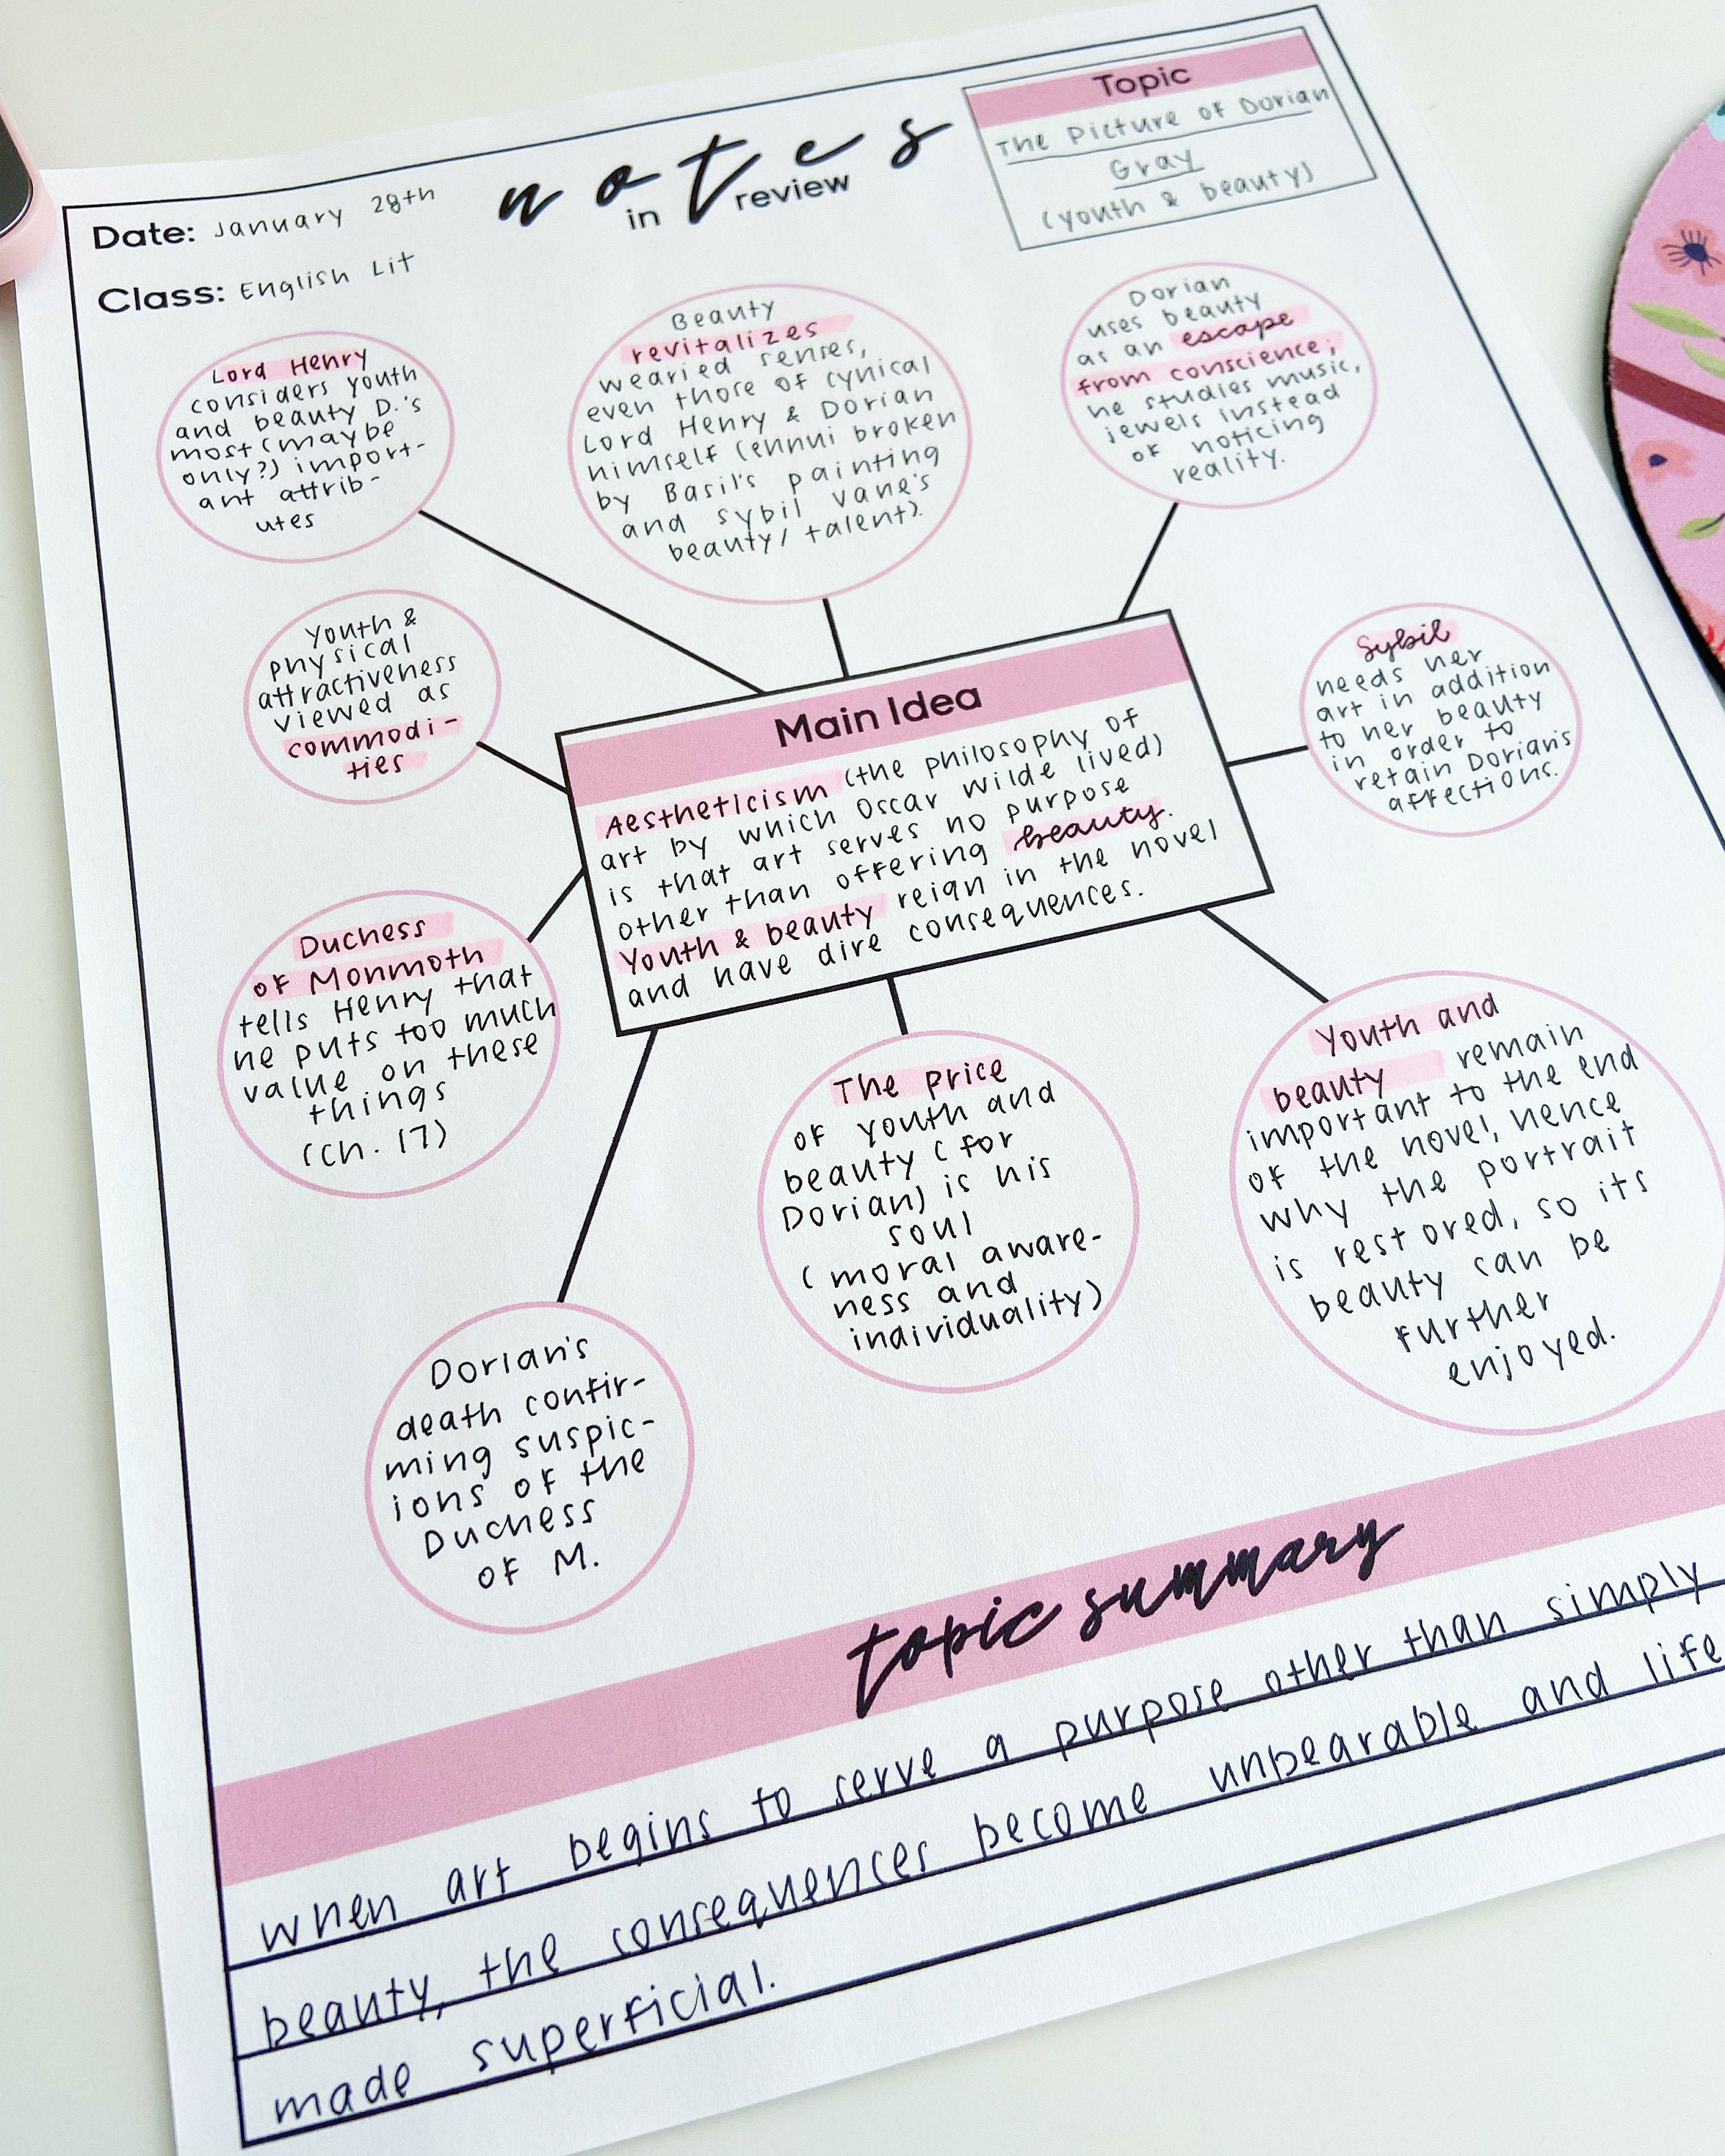 notes
in review
Topic
The Picture of Dorian
Gray
(youth & beauty)
Date: January 28th
Class: English Lit
Lord Henry
considers youth
and beauty D.'s
most (maybe
only?) import-
ant attrib-
utes
Beauty
revitalizes
wearied senses,
even those of cynical
Lord Henry & Dorian
himself (ennui broken
by Basil's painting
and Sybil Vane's
beauty/talent).
Dorian
uses beauty
as an escape
from conscience;
he studies music,
jewels instead
of noticing
reality.
Youth &
physical
attractiveness
viewed as
commodi-
ties
Main Idea
Aestheticism (the philosophy of
art by which Oscar Wilde lived)
is that art serves no purpose
other than offering beauty.
Youth & beauty reign in the novel
and have dire consequences.
Sybil
needs her
art in addition
to her beauty
in order to
retain Dorian's
affections.
Duchess
of Monmoth
tells Henry that
he puts too much
value on these
things
(Ch. 17)
The price
of youth and
beauty (for
Dorian) is his
soul
(moral aware-
ness and
individuality)
Youth and
beauty remain
important to the end
of the novel, hence
why the portrait
is restored, so its
beauty can be
further
enjoyed.
Dorian's
death confir-
ming suspic-
ions of the
Duchess
of M.
topic summary
when art begins to serve a purpose other than simply
beauty, the consequences become unbearable and life
made superficial.